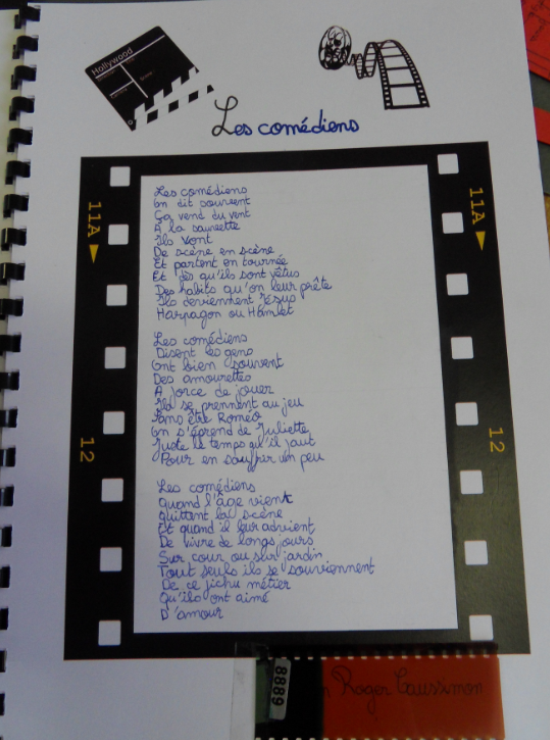 Hollywood
Les comédiens
11A
11A
Les comédiens
On dit souvent
Ça vend du vent
A la sauvette
Ils vont
De scène en scène
Et partent en tournée
Et dès qu'ils sont vêtus
Des habits qu'on leur prête
Ils deviennent Jésus
Harpagon ou Hamlet
Les comédiens
Disent les gens
Ont bien souvent
Des amourettes
A force de jouer
Ils se prennent au jeu
Sans être Roméo
On s'éprend de Juliette
Juste le temps qu'il faut
Pour en souffrir un peu
12
12
Les comédiens
Quand l'âge vient
Quittant la scène
Et quand il leur advient
De vivre de longs jours
Sur cour ou sur jardin
Tout seuls ils se souviennent
De ce fichu métier
Qu'ils ont aimé
D'amour
8889
Roger Caussimon